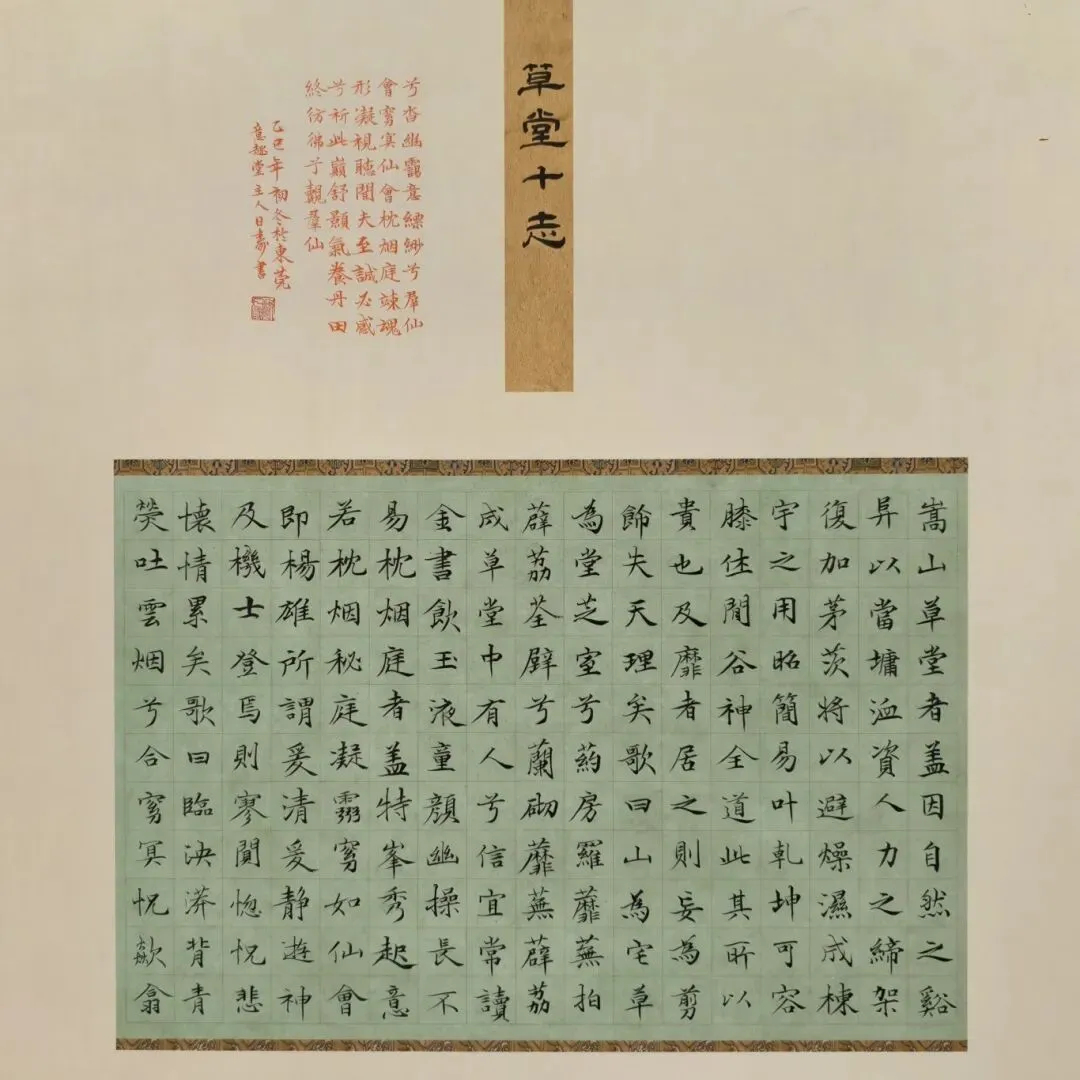 草堂十志
嵩山草堂者盖因自然之谿
异以當墉洫資人力之締架
復加茅茨将以避燥濕成棟
宇之用昭簡易叶乹坤可容
膝住閒谷神全道此其所以
貴也及靡者居之則妄為剪
飾失天理矣歌曰山為宅草
為堂芝室兮葯房羅蘼蕪拍
薜荔荃壁兮蘭砌蘼蕪薜荔
成草堂中有人兮信宜常讀
金書飲玉液童顏幽操長不
易枕烟庭者盖特峯秀起意
若枕烟秘庭凝靈窅如仙會
即楊雄所謂爰清爰静遊神
及機士登焉則寥闃惚怳悲
懷情累矣歌曰臨泱漭背青
熒吐雲烟兮合窅冥怳歘翕
兮沓幽靄意縹緲兮羣仙
會窅冥仙會枕烟庭竦魂
形凝視聽聞夫至誠必感
兮祈此巔舒顥氣養丹田
終彷彿兮覿羣仙
乙巳年初冬於東莞
意趣堂主人日壽書